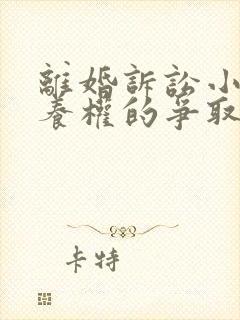 離婚訴訟小
養權的爭取
卡特